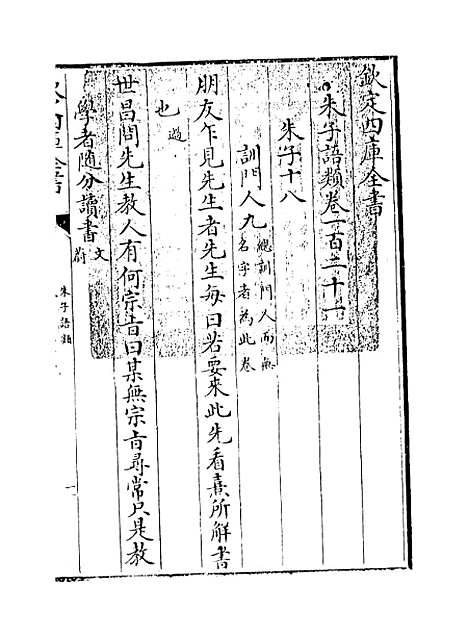 欽定四庫全書
朱子語類卷一百二十一
朱子十八
訓門人九總訓門人而無名字者為此卷
朋友乍見先生者先生每曰若要來此先看熹所解書
也過
世昌問先生教人有何宗旨曰某無宗旨尋常只是教
學者隨分讀書文蔚
欽定四庫全書
朱子語類
一